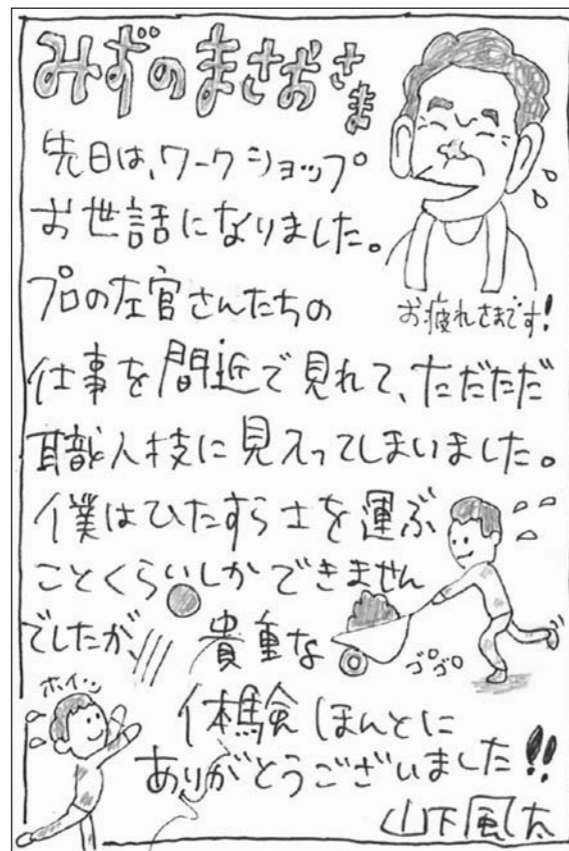 みずのまさおさま
先日は、ワークショップ
お世話になりました。
お疲れさまです!
プロの左官さんたちの
仕事を間近で見れて、ただただ
職人技に見入ってしまいました。
僕はひたすら土を運ぶ
ことくらいしかできません
でしたが、貴重な
ゴロゴロ
ホイッ
体験ほんとに
ありがとうございました!!
山下風太